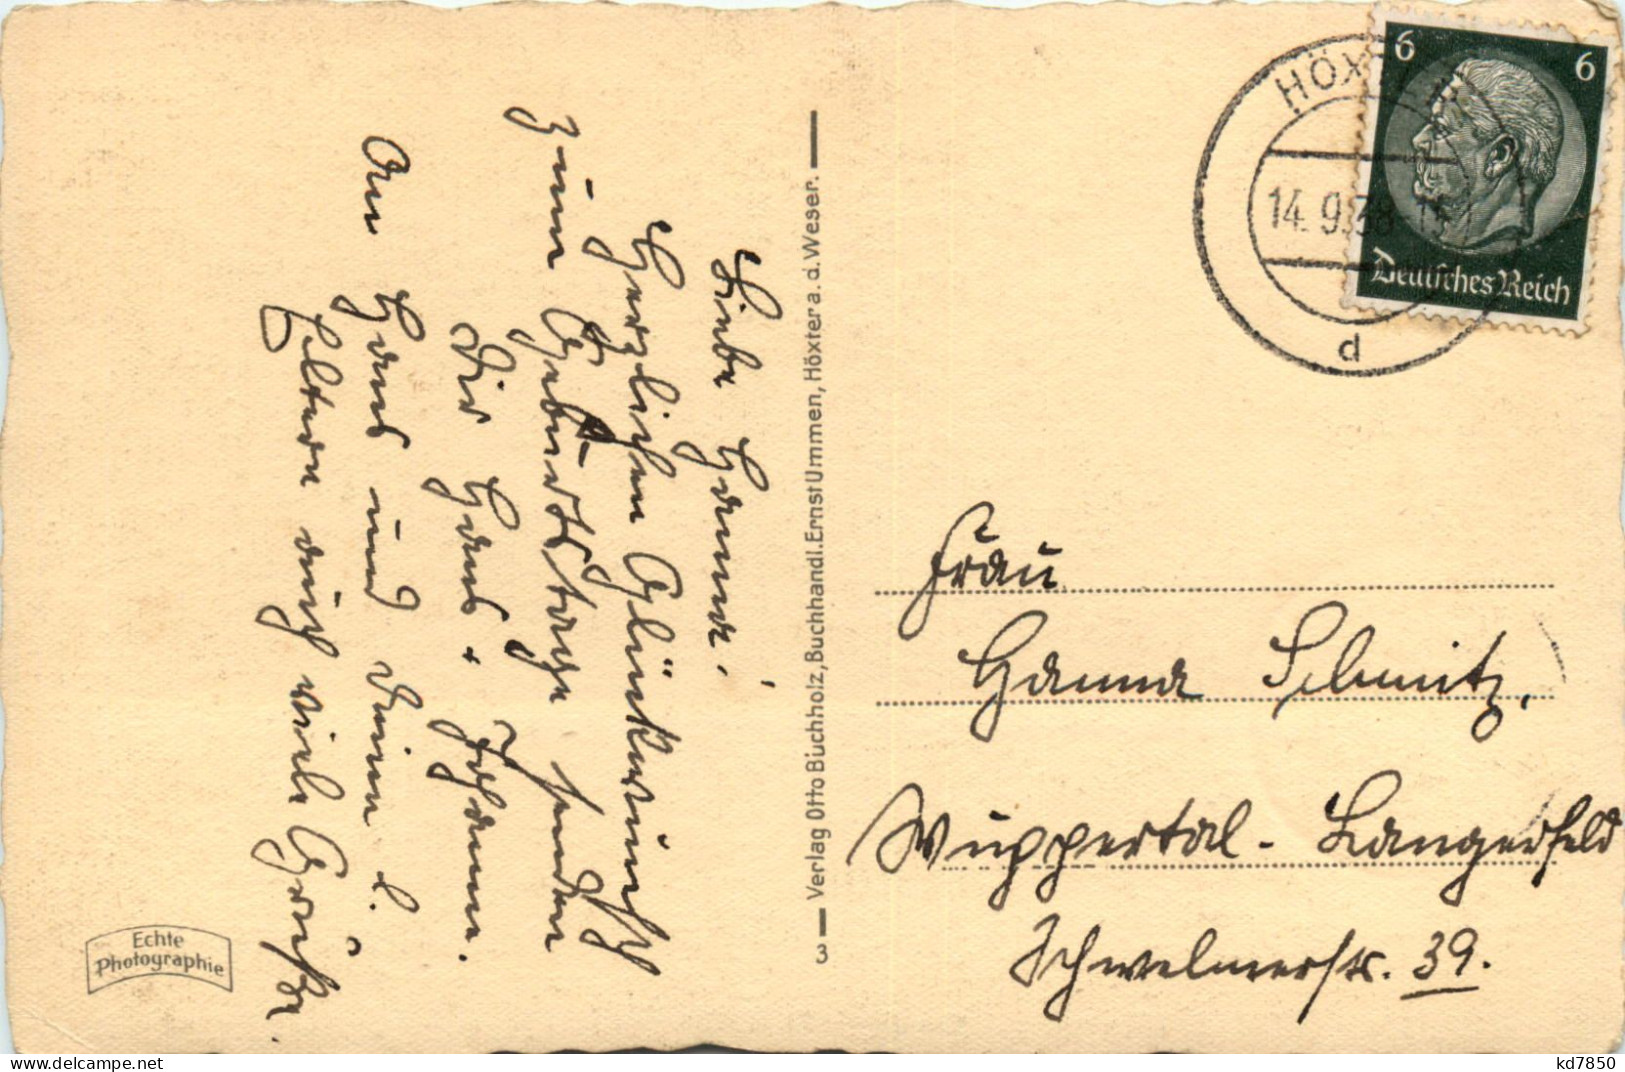 Liebe Hanna!
Herzlichen Glückwunsch
zum Geburtstage senden
Dir Hans + Johanne.
An Hans und Deine l.
Eltern auch viele Grüße.
Echte
Photographie
Verlag Otto Buchholz, Buchhandl. Ernst Ummen, Höxter a. d. Weser.
3
HÖXTER
14.9.38
d
6 6
Deutsches Reich
Frau
Hanna Schmitz.
Wuppertal-Langerfeld
Schwelmerstr. 39.
www.delcampe.net
kd7850